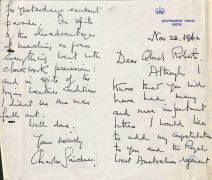 GOVERNMENT HOUSE
PERTH
Nov 28. 1962
Dear Colonel Roberts.
Although I
know that you will
have had many
and more important
letters I would like
to add my congratulations
to you and the Royal
West Australian regiment
for yesterday's
parade. In spite
of the disadvantage
of marching on grass
everything went with
clockwork precision:
and in spite of the
trying weather conditions
I didn't see one man
fall out!
Well done.
Yours sincerely
Charles Gairdner.